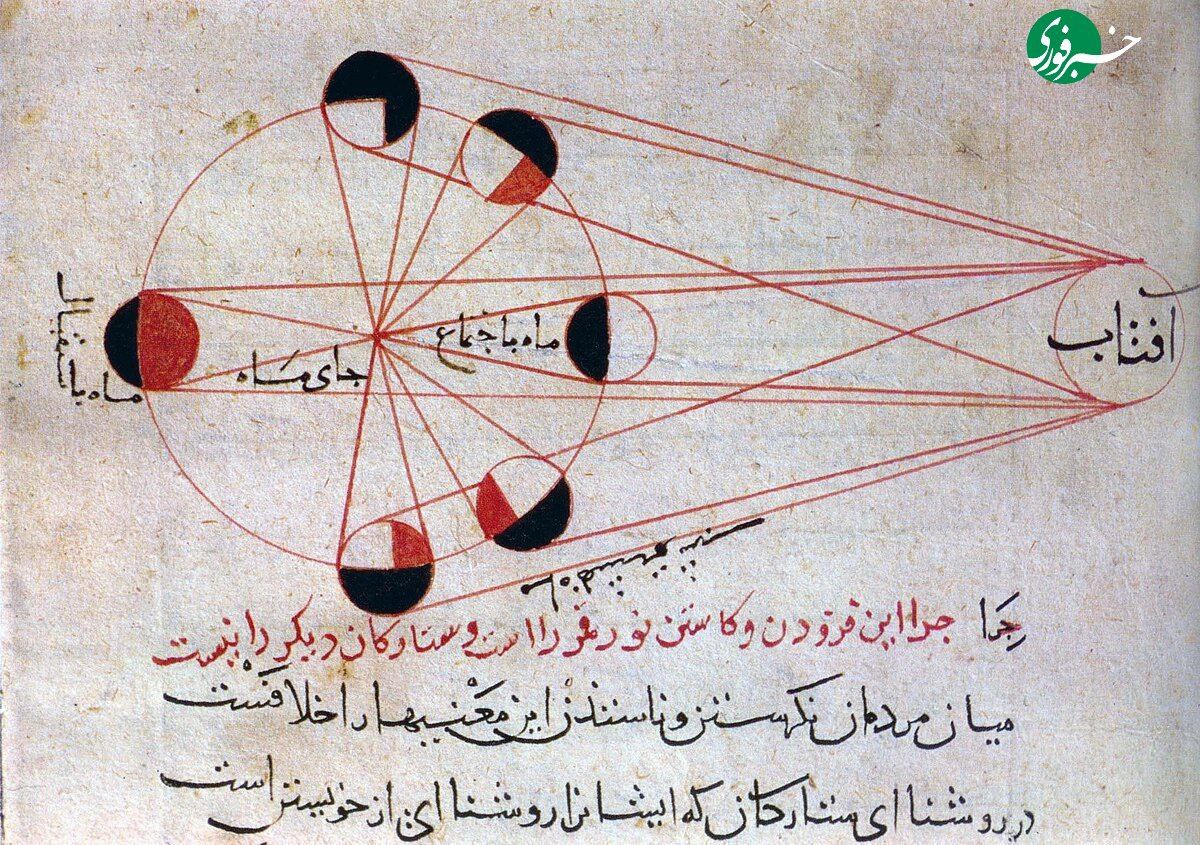 خبرفوری
آفتاب
ماه باجتماع
جای ماه
ماه باستقبال
چرا چرا این فزودن و کاستن نور قمر را است و ستارکان دیکر را نیست
میان مردمان نکرستن و نا سنتذن این معنیها را خلافست
در روشنا ای ستارکان که ایشانرا روشنا ای از خویستن است